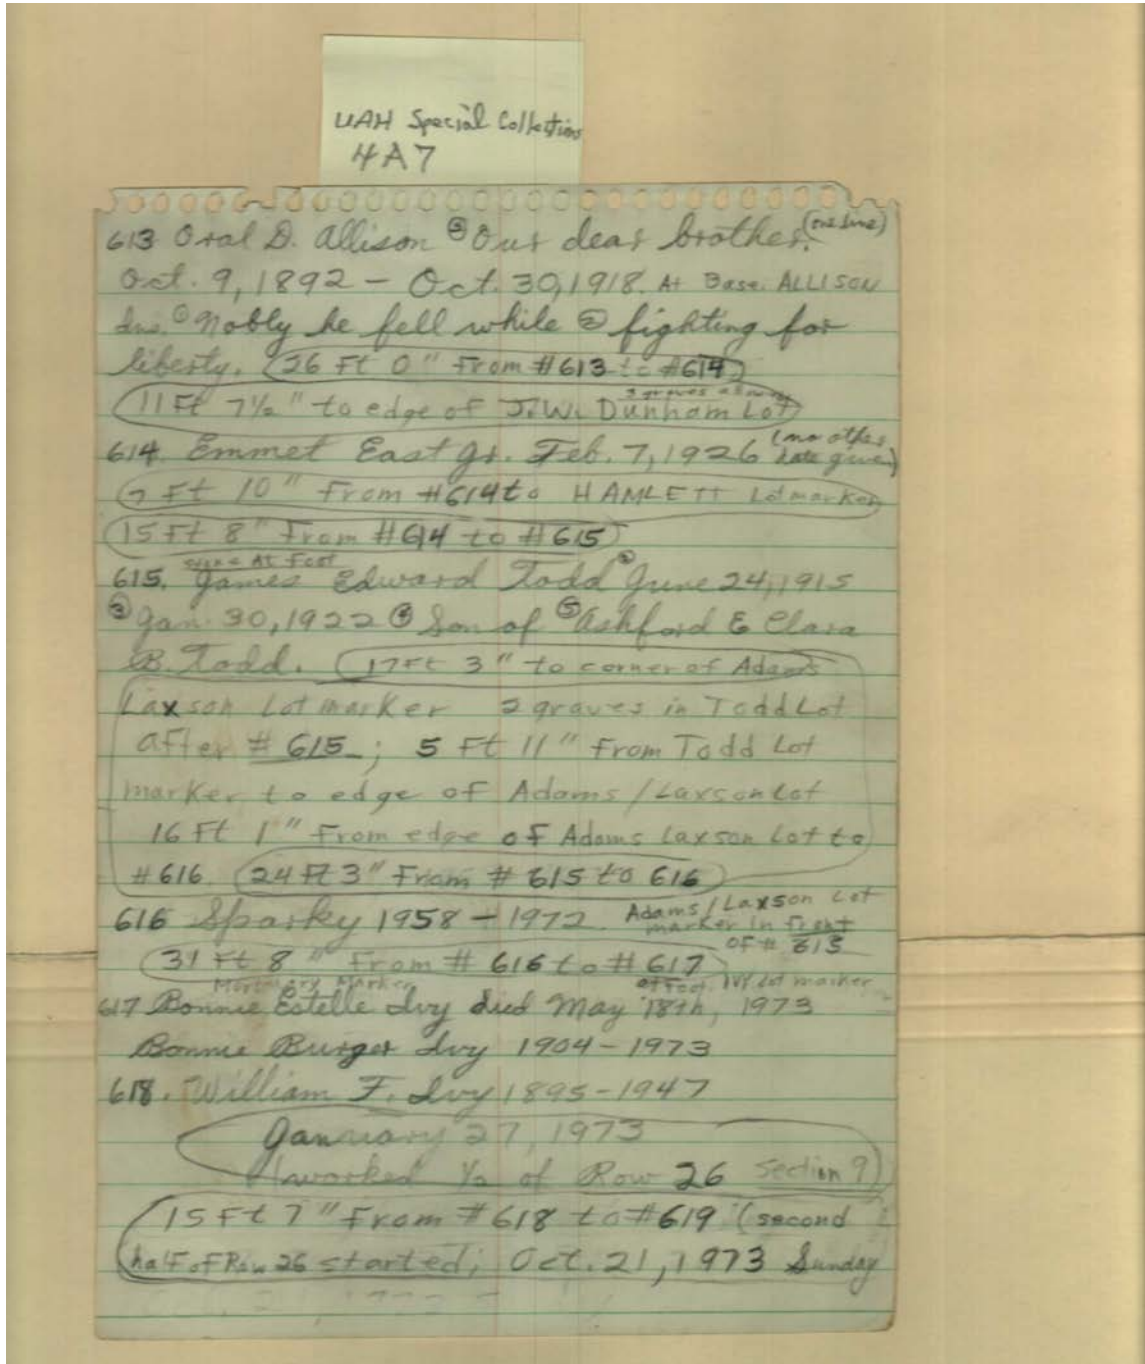 UAH Special Collections
4A7
(one line)
613 Oral D. Allison ③ Our dear brother.
Oct. 9, 1892 - Oct. 30, 1918. At Base. ALLISON
① Nobly he fell while ② fighting for
liberty. (26 Ft 0" From #613 to #614)
3 graves
(11 Ft 7½" to edge of J.W. Dunham Lot)
614. Emmet East Jr. Feb. 7, 1926 (no other
date given)
(7 Ft 10" From #614 to HAMLETT Lot marker
(15 Ft 8" From #614 to #615)
At Foot
615. James Edward Todd ② June 24, 1915
③ Jan. 30, 1922 ④ Son of ⑤ Ashford & Clara
B. Todd. (17 Ft 3" to corner of Adams
Laxson Lot marker 2 graves in Todd Lot
after # 615; 5 Ft 11" From Todd Lot
marker to edge of Adams/Laxson Lot
16 Ft 1" From edge of Adams Laxson Lot to
#616. (24 Ft 3" From # 615 to 616)
616 Sparky 1958 - 1972. Adams/Laxson Lot
marker in front
OF # 615
(31 Ft 8" From # 616 to # 617)
Mortuary Marker at Foot. Ivy Lot marker
617 Bonnie Estelle Ivy died May 18th, 1973
Bonnie Burger Ivy 1904-1973
618. William F. Ivy 1895-1947
Januuary 27, 1973
I worked ½ of Row 26 Section 9)
(15 Ft 7" From #618 to #619 (second
half of Row 26 started; Oct. 21, 1973 Sunday